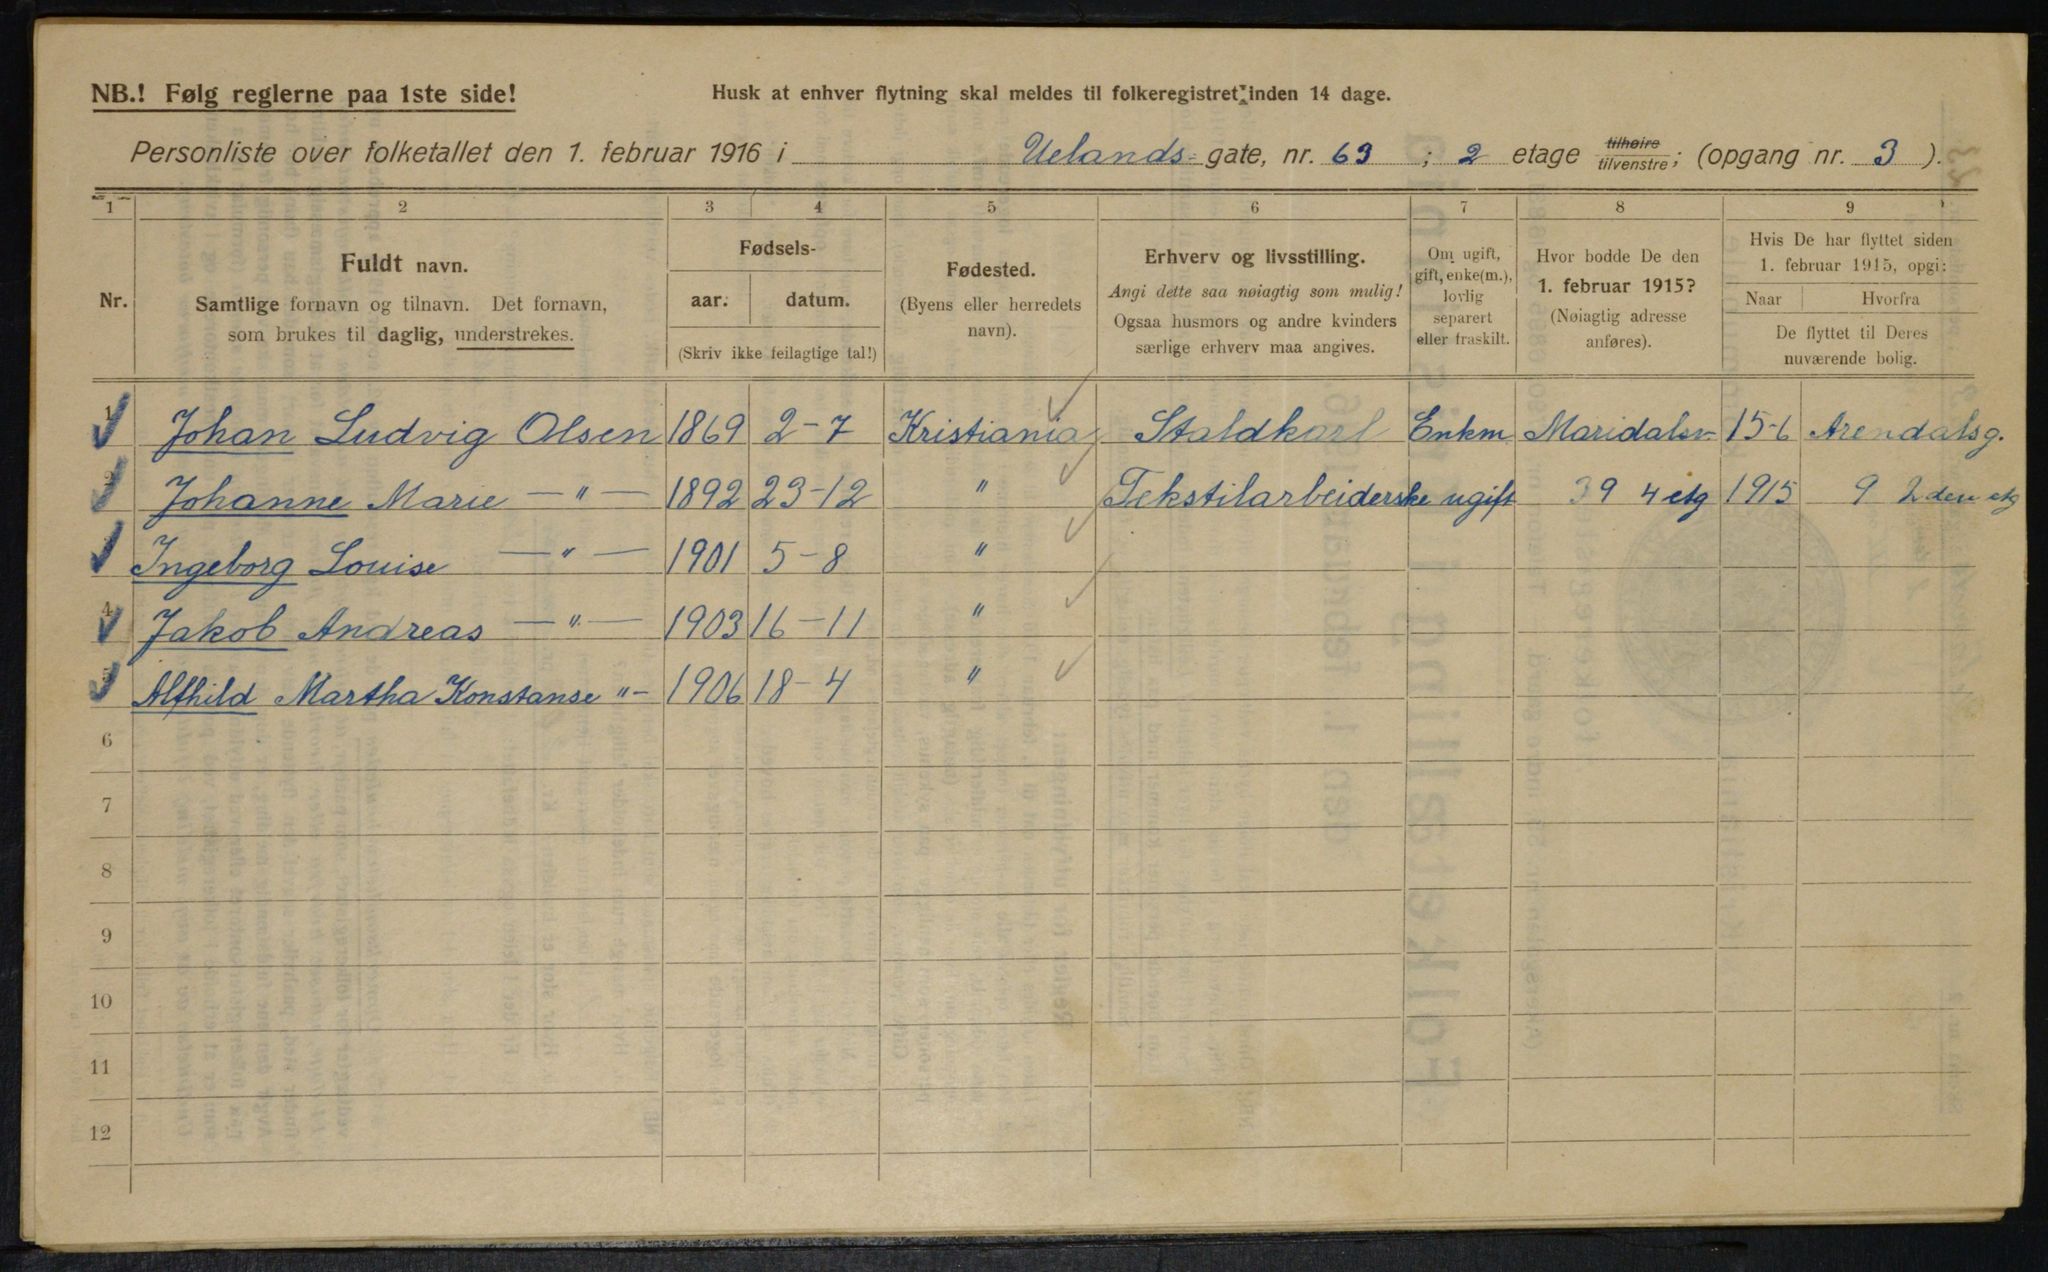 NB.! Følg reglerne paa 1ste side!
Husk at enhver flytning skal meldes til folkeregistret inden 14 dage.
Personliste over folketallet den 1. februar 1916 i Uelands- gate, nr. 63 ; 2 etage tilhøire tilvenstre; (opgang nr. 3 ).
1 2 3 4 5 6 7 8 9
Nr.
Fuldt navn.
Samtlige fornavn og tilnavn. Det fornavn,
som brukes til daglig, understrekes.
Fødsels-
aar. datum.
(Skriv ikke feilagtige tal!)
Fødested.
(Byens eller herredets
navn).
Erhverv og livsstilling.
Angi dette saa nøiagtig som mulig!
Ogsaa husmors og andre kvinders
særlige erhverv maa angives.
Om ugift,
gift, enke(m.),
lovlig
separert
eller fraskilt.
Hvor bodde De den
1. februar 1915?
(Nøiagtig adresse
anføres).
Hvis De har flyttet siden
1. februar 1915, opgi:
Naar Hvorfra
De flyttet til Deres
nuværende bolig.
1 Johan Ludvig Olsen 1869 2-7 Kristiania Staldkarl Enkm. Maridalsv- 15-6 Arendalsg.
2 Johanne Marie — " — 1892 23-12 " Tekstilarbeiderske ugift 39 4 etg 1915 9 2den etg
3 Ingeborg Louise — " — 1901 5-8 "
4 Jakob Andreas — " — 1903 16-11 "
5 Alfhild Martha Konstanse "- 1906 18-4 "
6
7
8
9
10
11
12